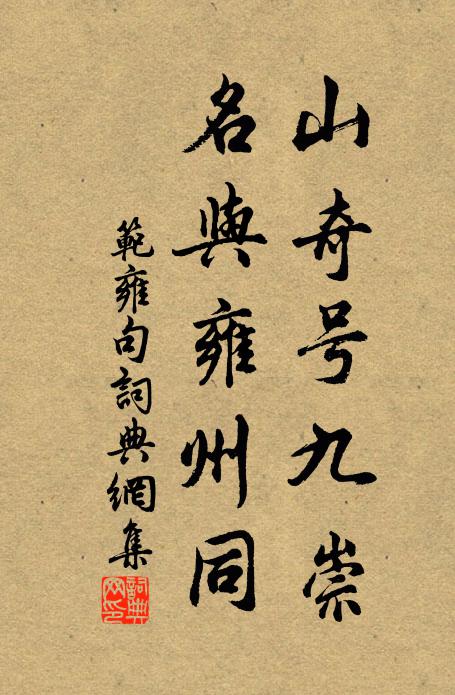 山奇号九崇
名與雍州同
範雍句詞典網集
詞典
网印